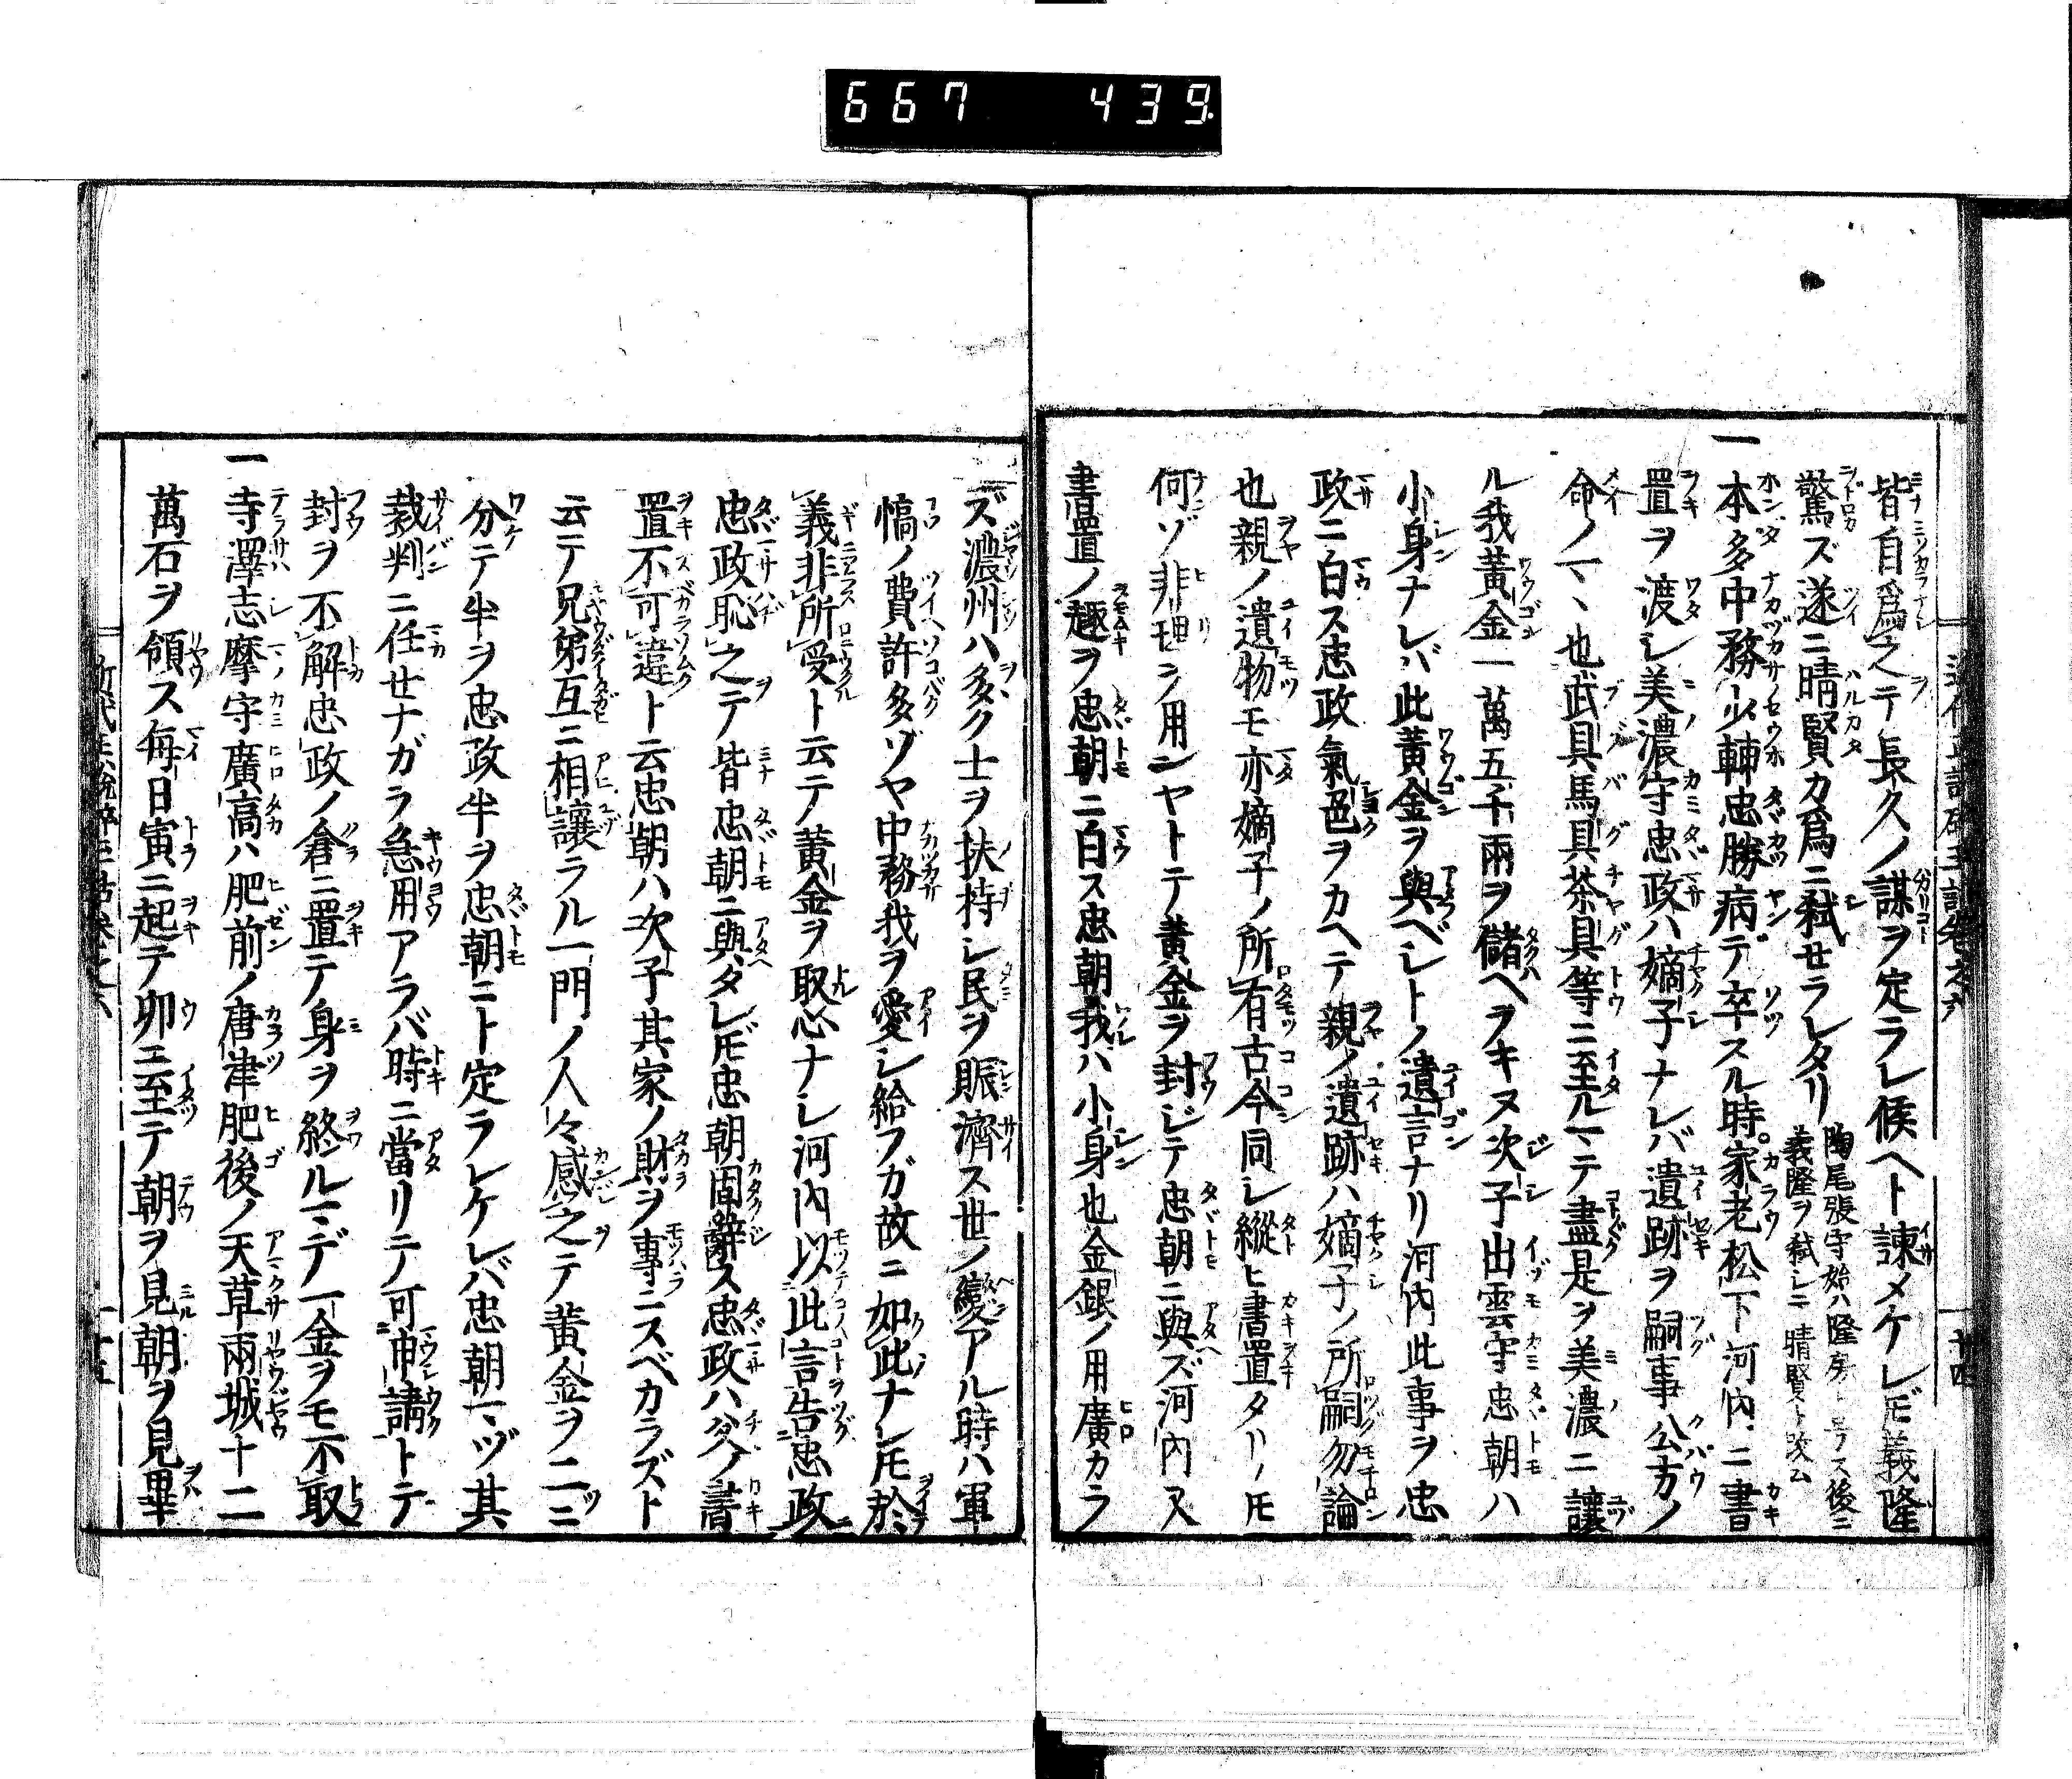 667 439
皆自爲之テ長久ノ謀ヲ定ラレ候ヘト諫メケレ𪜈義隆
驚ズ遂ニ晴賢カ爲ニ弑セラレタリ 陶尾張守始ハ隆房ト号ス後ニ
義隆ヲ弑シ 晴賢ト改ム
一本多中務少輔忠勝病デ卒スル時家老松下河内ニ書
置ヲ渡シ美濃守忠政ハ嫡子ナレバ遺跡ヲ嗣事公方ノ
命ノマヽ也武具馬具茶具等ニ至ルマテ盡是ヲ美濃ニ讓
ル我黃金一萬五千兩ヲ儲ヘヲキヌ次子出雲守忠朝ハ
小身ナレバ此黃金ヲ與ベシトノ遺言ナリ河内此事ヲ忠
政ニ白ス忠政氣色ヲカヘテ親ノ遺跡ハ嫡子ノ所嗣勿論
也親ノ遺物モ亦嫡子ノ所有古今同シ縱ヒ書置タリノ𪜈
何ゾ非理ヲ用ンヤトテ黄金ヲ封ジテ忠朝ニ與ズ河内又
書置ノ趣ヲ忠朝ニ白ス忠朝我ハ小身也金銀ノ用廣カラ
ズ濃州ハ多ク士ヲ扶持シ民ヲ賑濟ス世ノ變アル時ハ軍
犒ノ費許多ゾヤ中務我ヲ愛シ給フガ故ニ如此ナレ𪜈於
義非所受ト云テ黄金ヲ取心ナシ河内以此言告忠政
忠政恥之テ皆忠朝ニ與タレ𪜈忠朝固辭ス忠政ハ父ノ書
置不可違ト云忠朝ハ次子其家ノ財ヲ專ニスベカラズト
云テ兄弟互ニ相讓ラル一門ノ人々感之テ黄金ヲ二ツニ
分テ半ヲ忠政半ヲ忠朝ニト定ラレケレバ忠朝マヅ其
裁判ニ任セナガラ急用アラバ時ニ當リテ可申請トテ
封ヲ不解忠政ノ倉ニ置テ身ヲ終ルマデ一金ヲモ不取
一寺澤志摩守廣高ハ肥前ノ唐津肥後ノ天草兩城十二
萬石ヲ領ス毎日寅ニ起テ卯ニ至テ朝ヲ見朝ヲ見畢